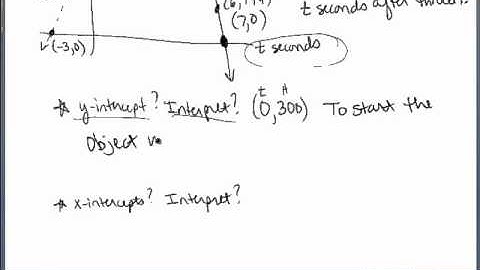 t seconds after
(7,0)
(-3,0)
t seconds
* y-intercept? Interpret? (0,300) To start the
t H
object
* x-intercepts? Interpret?